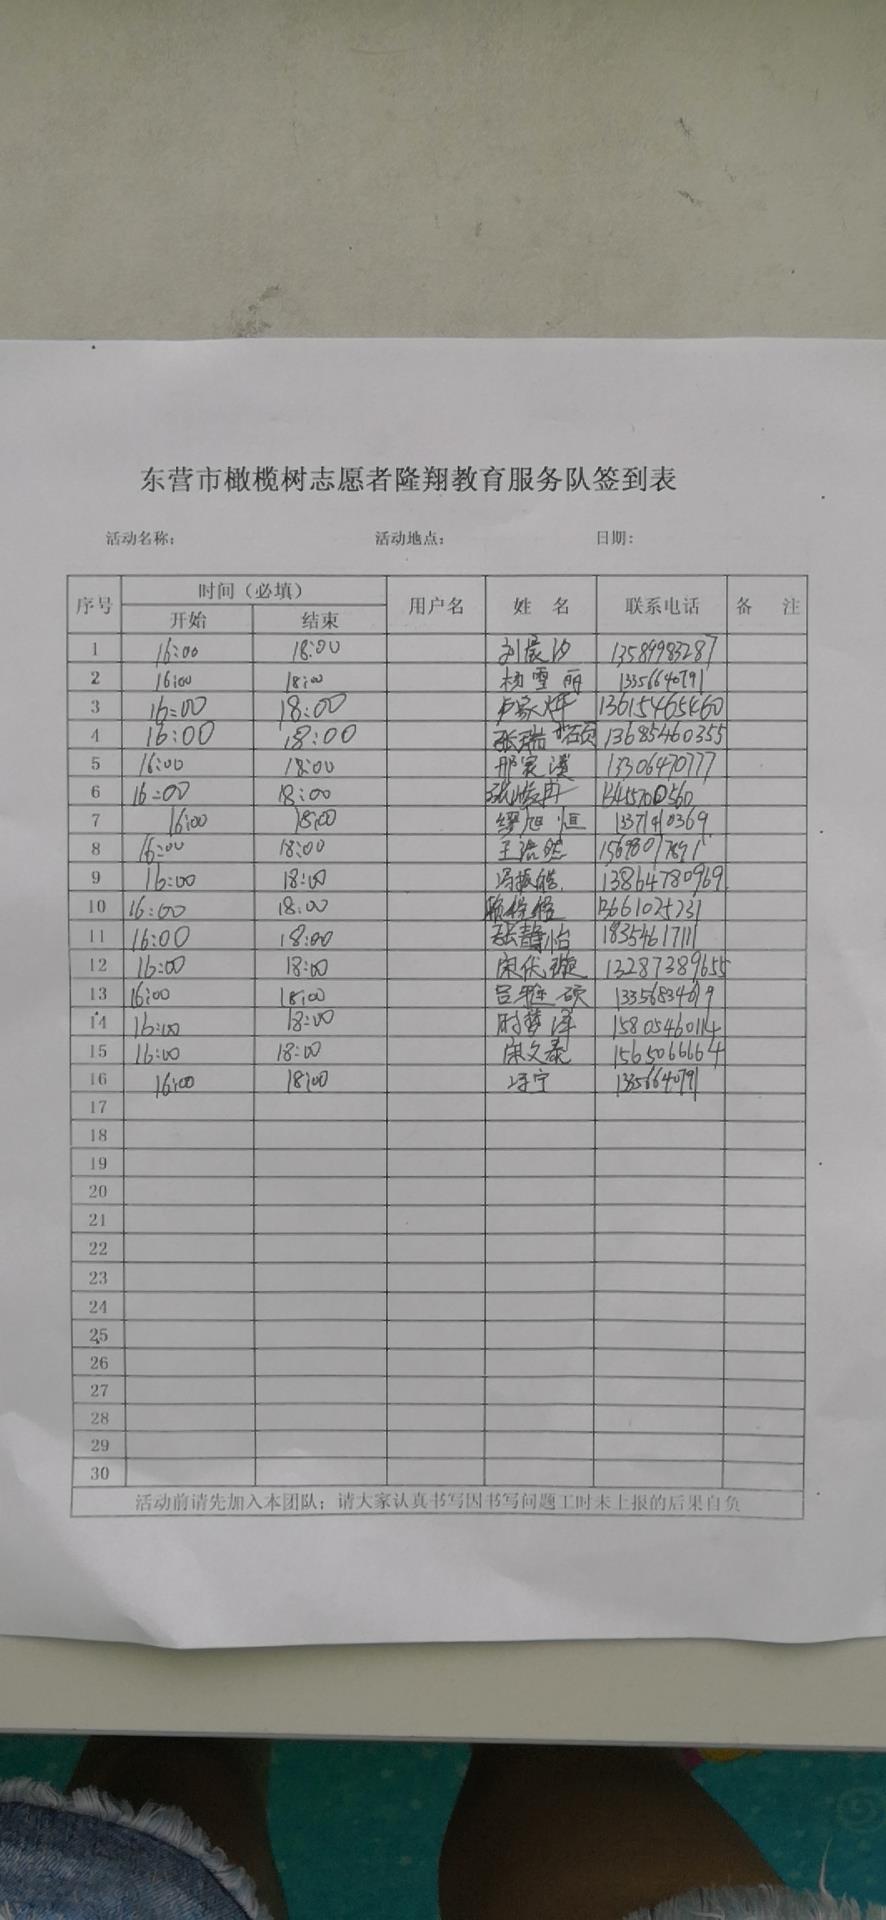 东营市橄榄树志愿者隆翔教育服务队签到表
活动名称： 活动地点： 日期：
序号 时间（必填） 用户名 姓 名 联系电话 备 注
开始 结束
1 16:00 18:00 刘宸汐 13589983287
2 16:00 18:00 杨雪丽 13356640791
3 16:00 18:00 卢家烨 13615465460
4 16:00 18:00 张瑞硕 13685460355
5 16:00 18:00 邢家溪 13306470777
6 16:00 18:00
7 16:00 18:00 缪旭恒 13371410369
8 16:00 18:00 王浩然 15698017891
9 16:00 18:00 冯振皓 13864780969
10 16:00 18:00 13661025231
11 16:00 18:00 张静怡 18354617111
12 16:00 18:00 宋代璇 13287389655
13 16:00 18:00 吕雅硕 13356834619
14 16:00 18:00 时梦泽 15805460114
15 16:00 18:00 宋文泰 1565066664
16 16:00 18:00 冯宁 13356640791
17
18
19
20
21
22
23
24
25
26
27
28
29
30
活动前请先加入本团队；请大家认真书写因书写问题工时未上报的后果自负